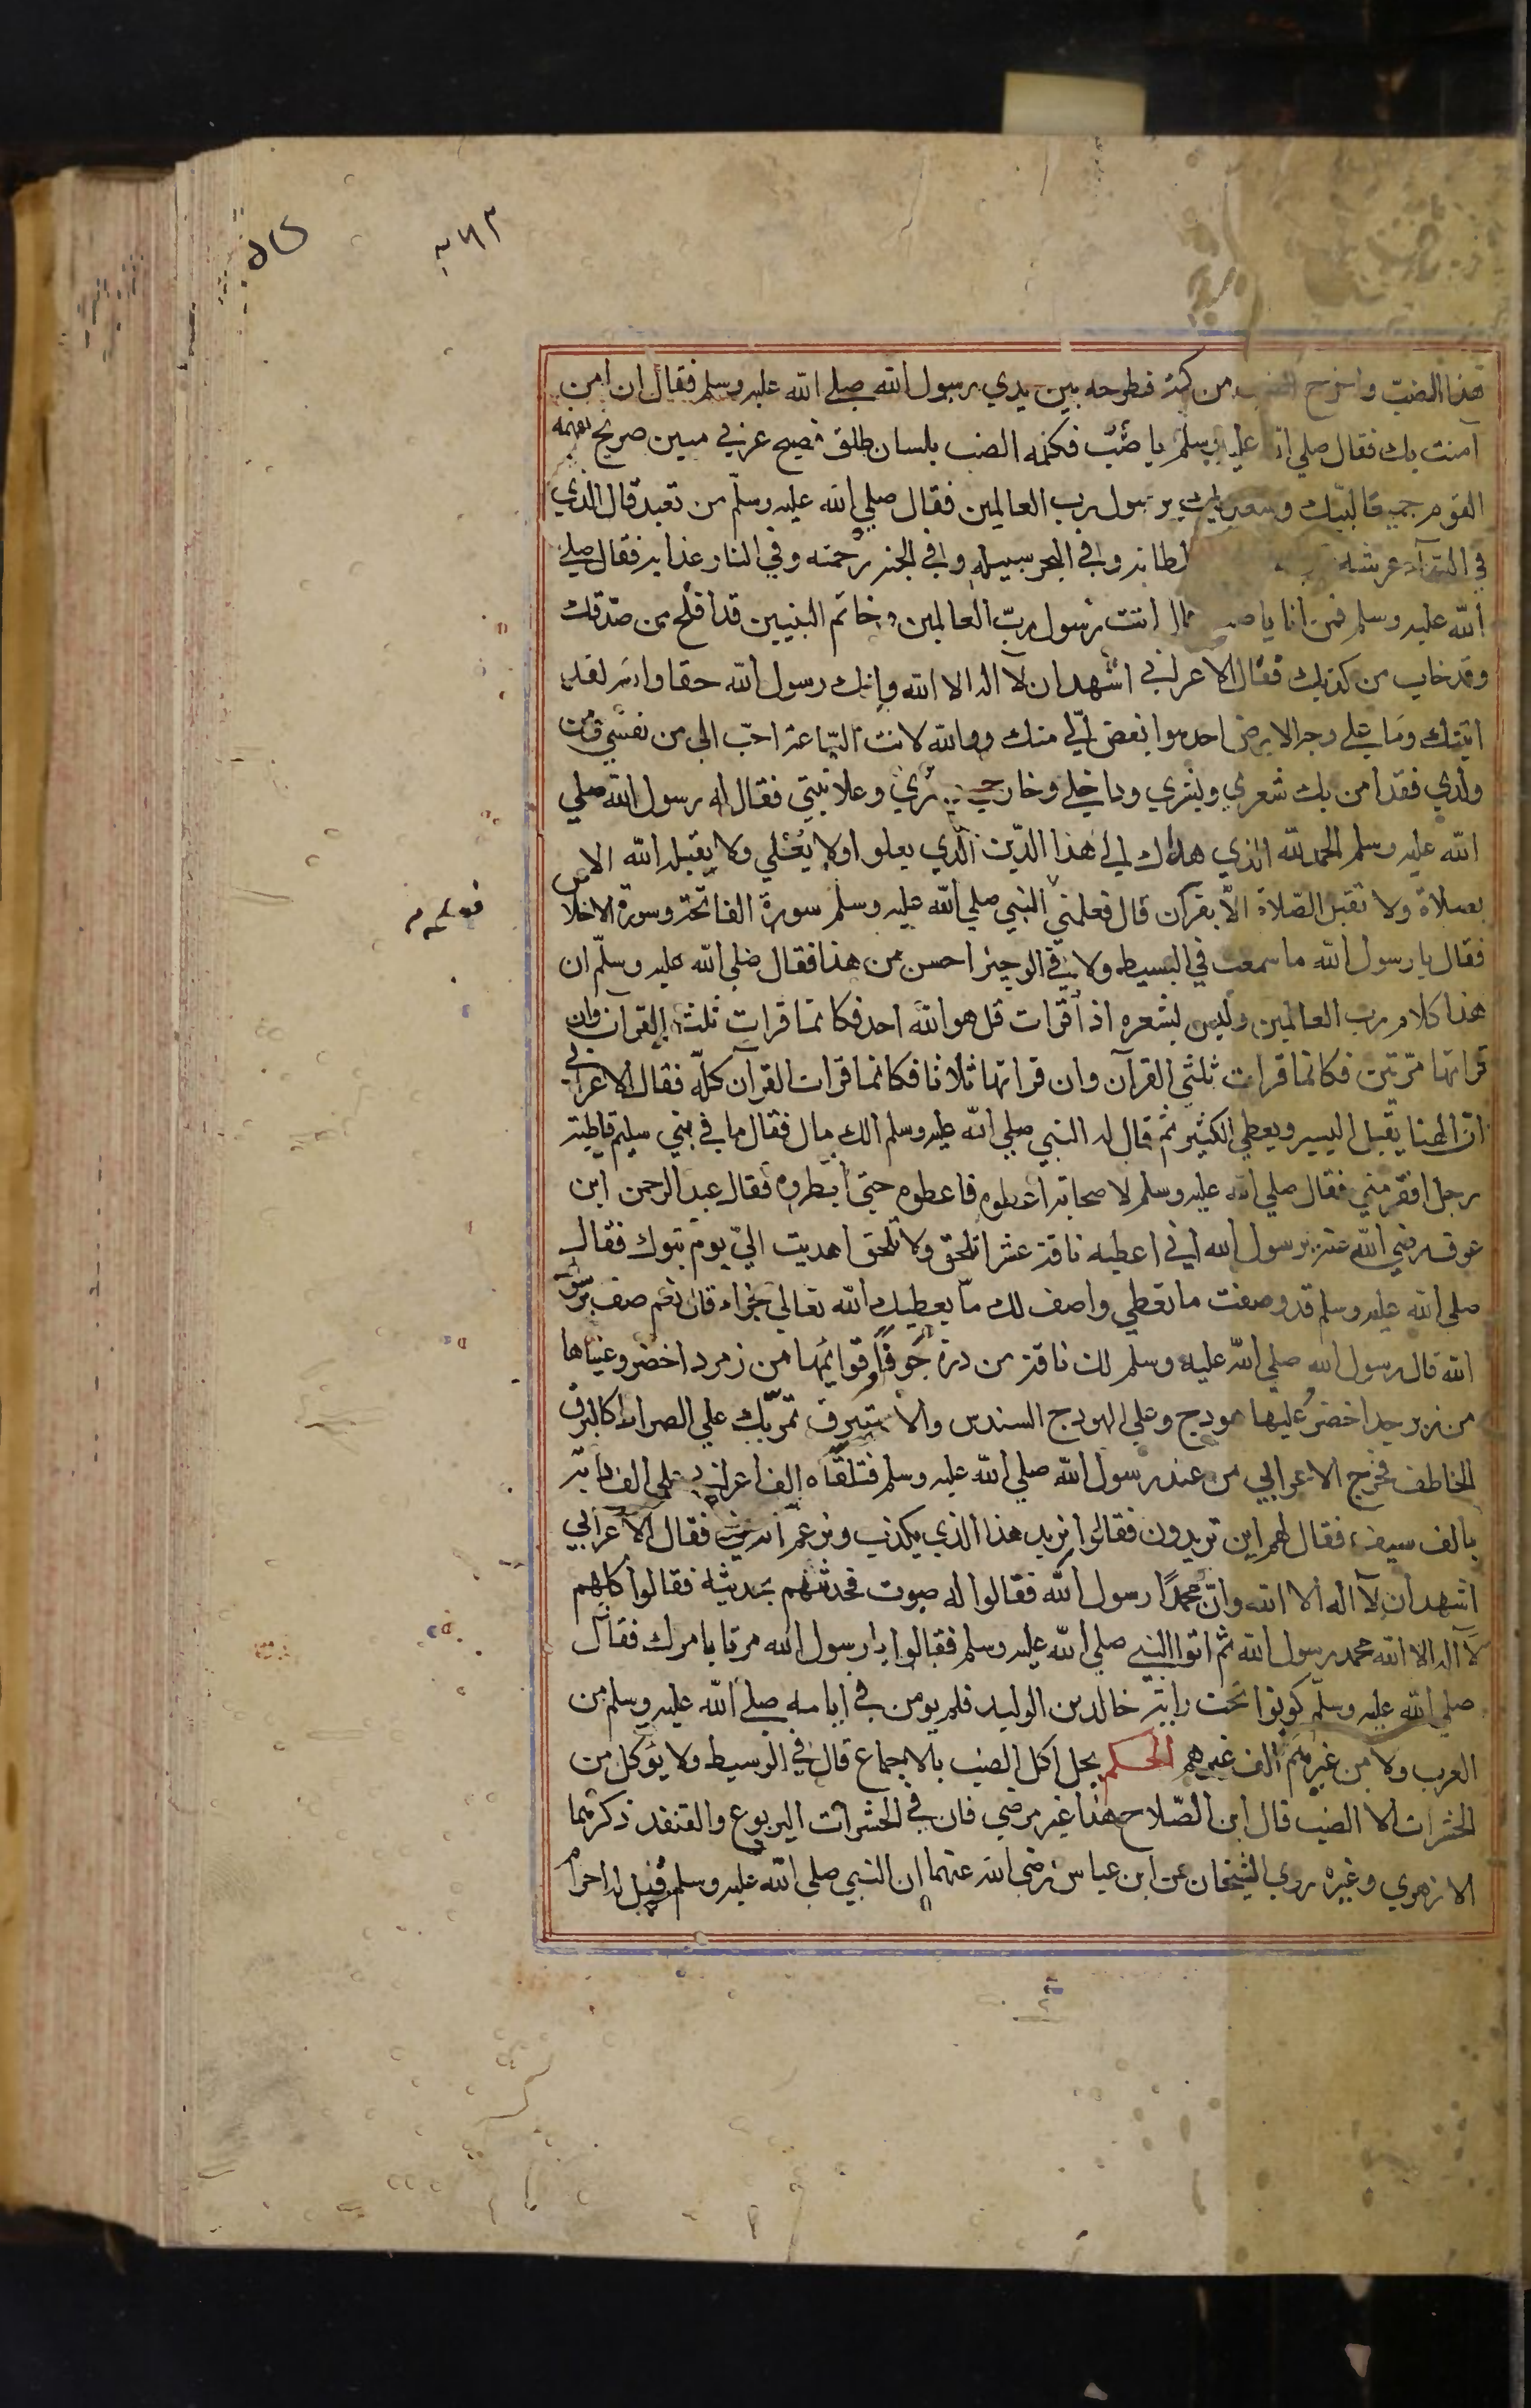 هذا الضب واخرج الضب من كمه فطرحه بين يدي رسول الله صلى الله عليه وسلم فقال ان امن
آمنت بك فقال صلي الله عليه وسلم يا ضب فكلمه الضب بلسان طلق فصيح عربي مبين صريح يفهمه
القوم جميعا لبيك وسعديك يا رسول رب العالمين فقال صلي الله عليه وسلم من تعبد قال الذي
في السماء عرشه سلطانه وفي البحر سبيله وفي الجنة رحمته وفي النار عذابه فقال صلي
الله عليه وسلم فمن انا يا ضب قال انت رسول رب العالمين وخاتم النبيين قد افلح من صدقك
وقد خاب من كذبك فقال الاعرابي اشهد ان لا اله الا الله وانك رسول الله حقا والله لقد
اتيتك وما علي وجه الارض احد هو ابغض الي منك ووالله لانت الساعة احب الي من نفسي ومن
ولدي فقد امن بك شعري وبشري وداخلي وخارجي وسري وعلانيتي فقال له رسول الله صلي
الله عليه وسلم الحمد لله الذي هداك الي هذا الدين الذي يعلو اولا يعلي ولا يقبله الله الا
بصلاة ولا تقبل الصلاة الا بقرآن قال فعلمني النبي صلي الله عليه وسلم سورة الفاتحة وسورة الاخلاص
فقال يا رسول الله ما سمعت في البسيط ولا في الوجيز احسن من هذا فقال صلي الله عليه وسلم ان
هذا كلام رب العالمين وليس بشعره اذا قرات قل هو الله احد فكانما قرات ثلث القرآن وان
قراتها مرتين فكانما قرات ثلثي القرآن وان قراتها ثلاثا فكانما قرات القرآن كله فقال الاعرابي
ان الهنا يقبل اليسير ويعطي الكثير ثم قال له النبي صلي الله عليه وسلم الك مال فقال ما في بني سليم قاطبة
رجل افقر مني فقال صلي الله عليه وسلم لاصحابه اعطوه فاعطوه حتى ابطروه فقال عبد الرحمن ابن
عوف رضي الله عنه يا رسول الله اني اعطيه ناقة عشرا تلحق ولا تلحق اهديت الي يوم تبوك فقال
صلى الله عليه وسلم قد وصفت ما تعطي واصف لك ما يعطيك الله تعالي جزاء قال نعم صف يا رسول
الله قال رسول الله صلي الله عليه وسلم لك ناقة من درة جوفا قوائمها من زمرد اخضر وعيناها
من زبرجد اخضر عليها هودج وعلي الهودج السندس والاستبرق تمر بك علي الصراط كالبرق
الخاطف فخرج الاعرابي من عند رسول الله صلي الله عليه وسلم فتلقاه الف اعرابي علي الف دابة
بالف سيف فقال لهم اين تريدون فقالوا نريد هذا الذي يكذب ويزعم انه نبي فقال الاعرابي
اشهد ان لا اله الا الله وان محمدا رسول الله فقالوا له صبوت فحدثهم بحديثه فقالوا كلهم
لا اله الا الله محمد رسول الله ثم اتوا النبي صلي الله عليه وسلم فقالوا يا رسول الله مرنا بامرك فقال
صلي الله عليه وسلم كونوا تحت راية خالد بن الوليد فلم يومن في ايامه صلى الله عليه وسلم من
العرب ولا من غيرهم الف غيرهم الحكم يحل اكل الضب بالاجماع قال في الوسيط ولا يؤكل من
الحشرات الا الضب قال ابن الصلاح هذا غير مرضي فان في الحشرات اليربوع والقنفذ ذكرهما
الازهري وغيره روي الشيخان عن ابن عباس رضي الله عنهما ان النبي صلي الله عليه وسلم قيل له احرام